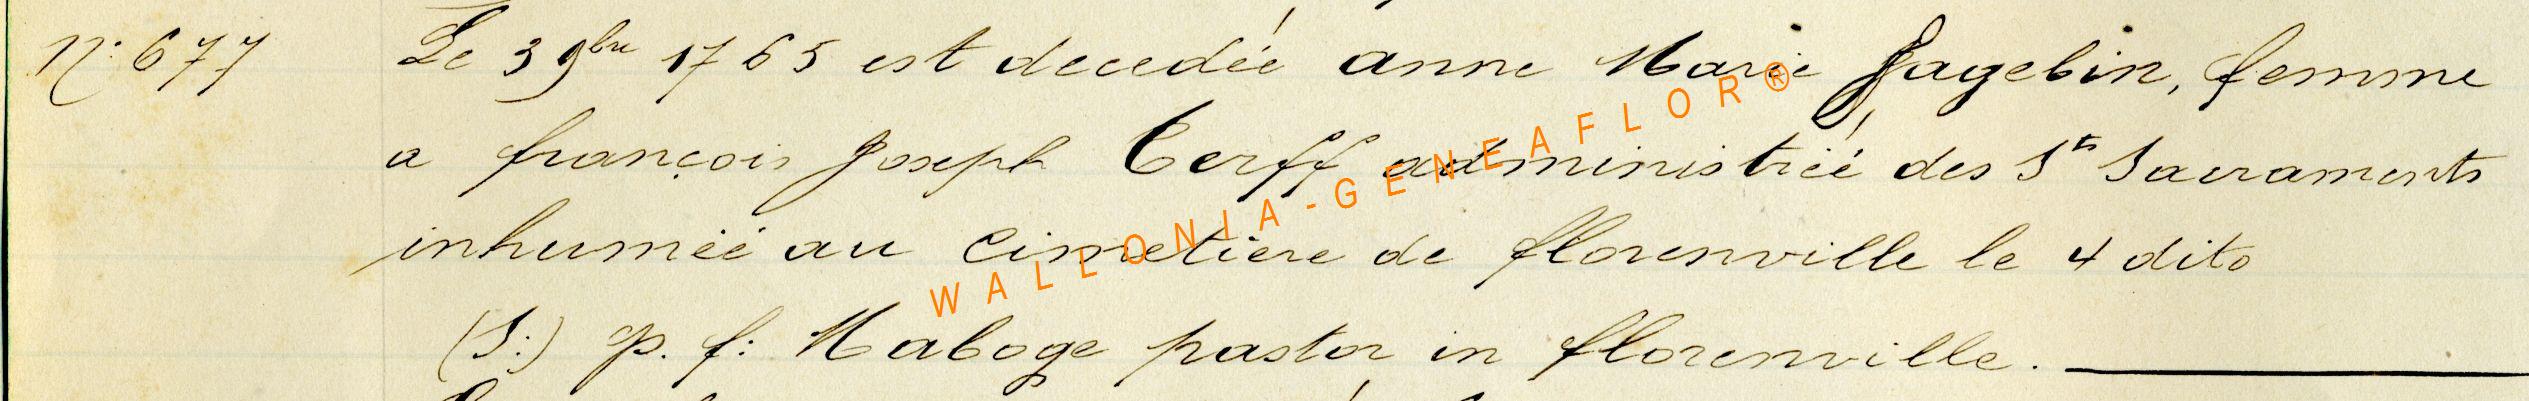 N° 677 Le 3 9bre 1765 est decedéé anne Marie Jagebin, femme
a françois Joseph Cerff administréé des Sts Sacraments
inhuméé au Cimetiere de florenville le 4 dito
(S:) p. f: Maboge pastor in florenville.
WALLONIA-GENEAFLOR®